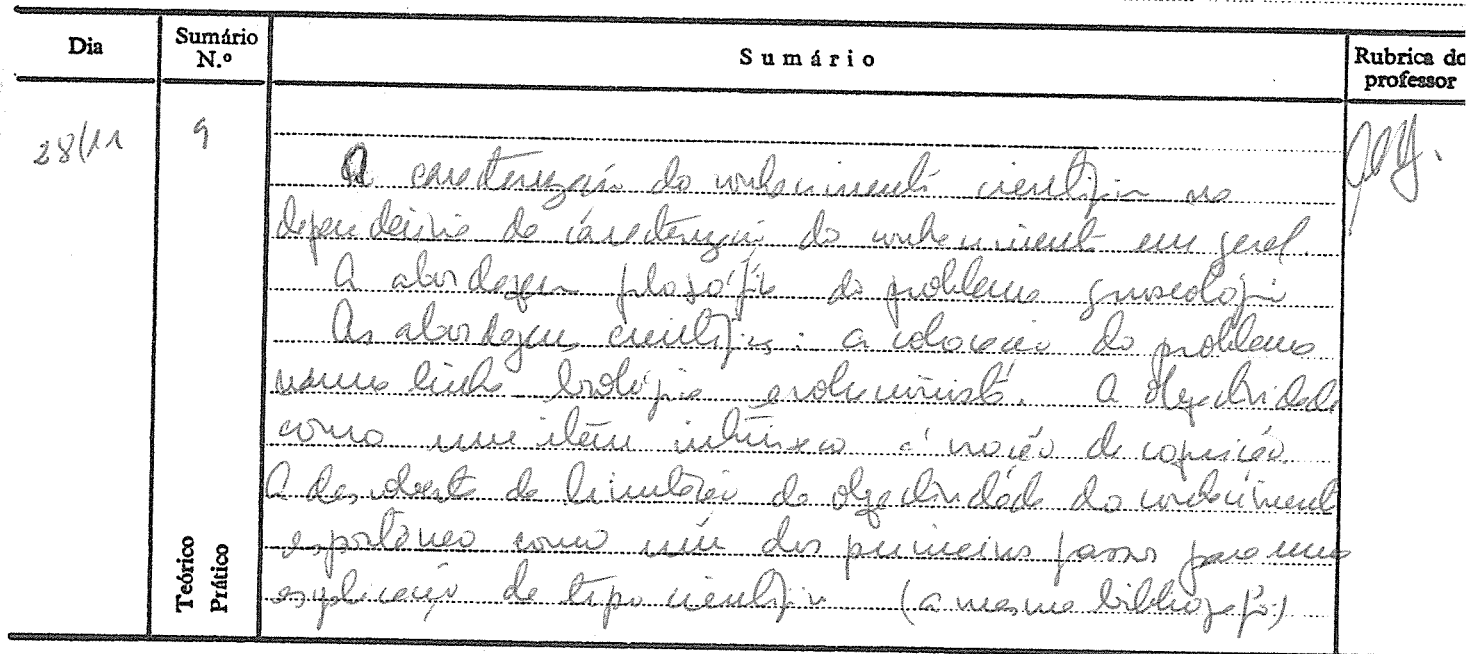 Dia
Sumário N.º
Sumário
Rubrica do professor
28/11
9
A caracterização do conhecimento científico na
dependência da caracterização do conhecimento em geral.
A abordagem filosófica do problema gnoseológico
As abordagens científicas: a colocação do problema
numa linha biológica evolucionista. A objectividade
como um item intrínseco à noção de cognição.
A descoberta da limitação da objectividade do conhecimento
espontâneo como um dos primeiros passos para uma
explicação de tipo científico (a mesma bibliografia)
Teórico
Prático